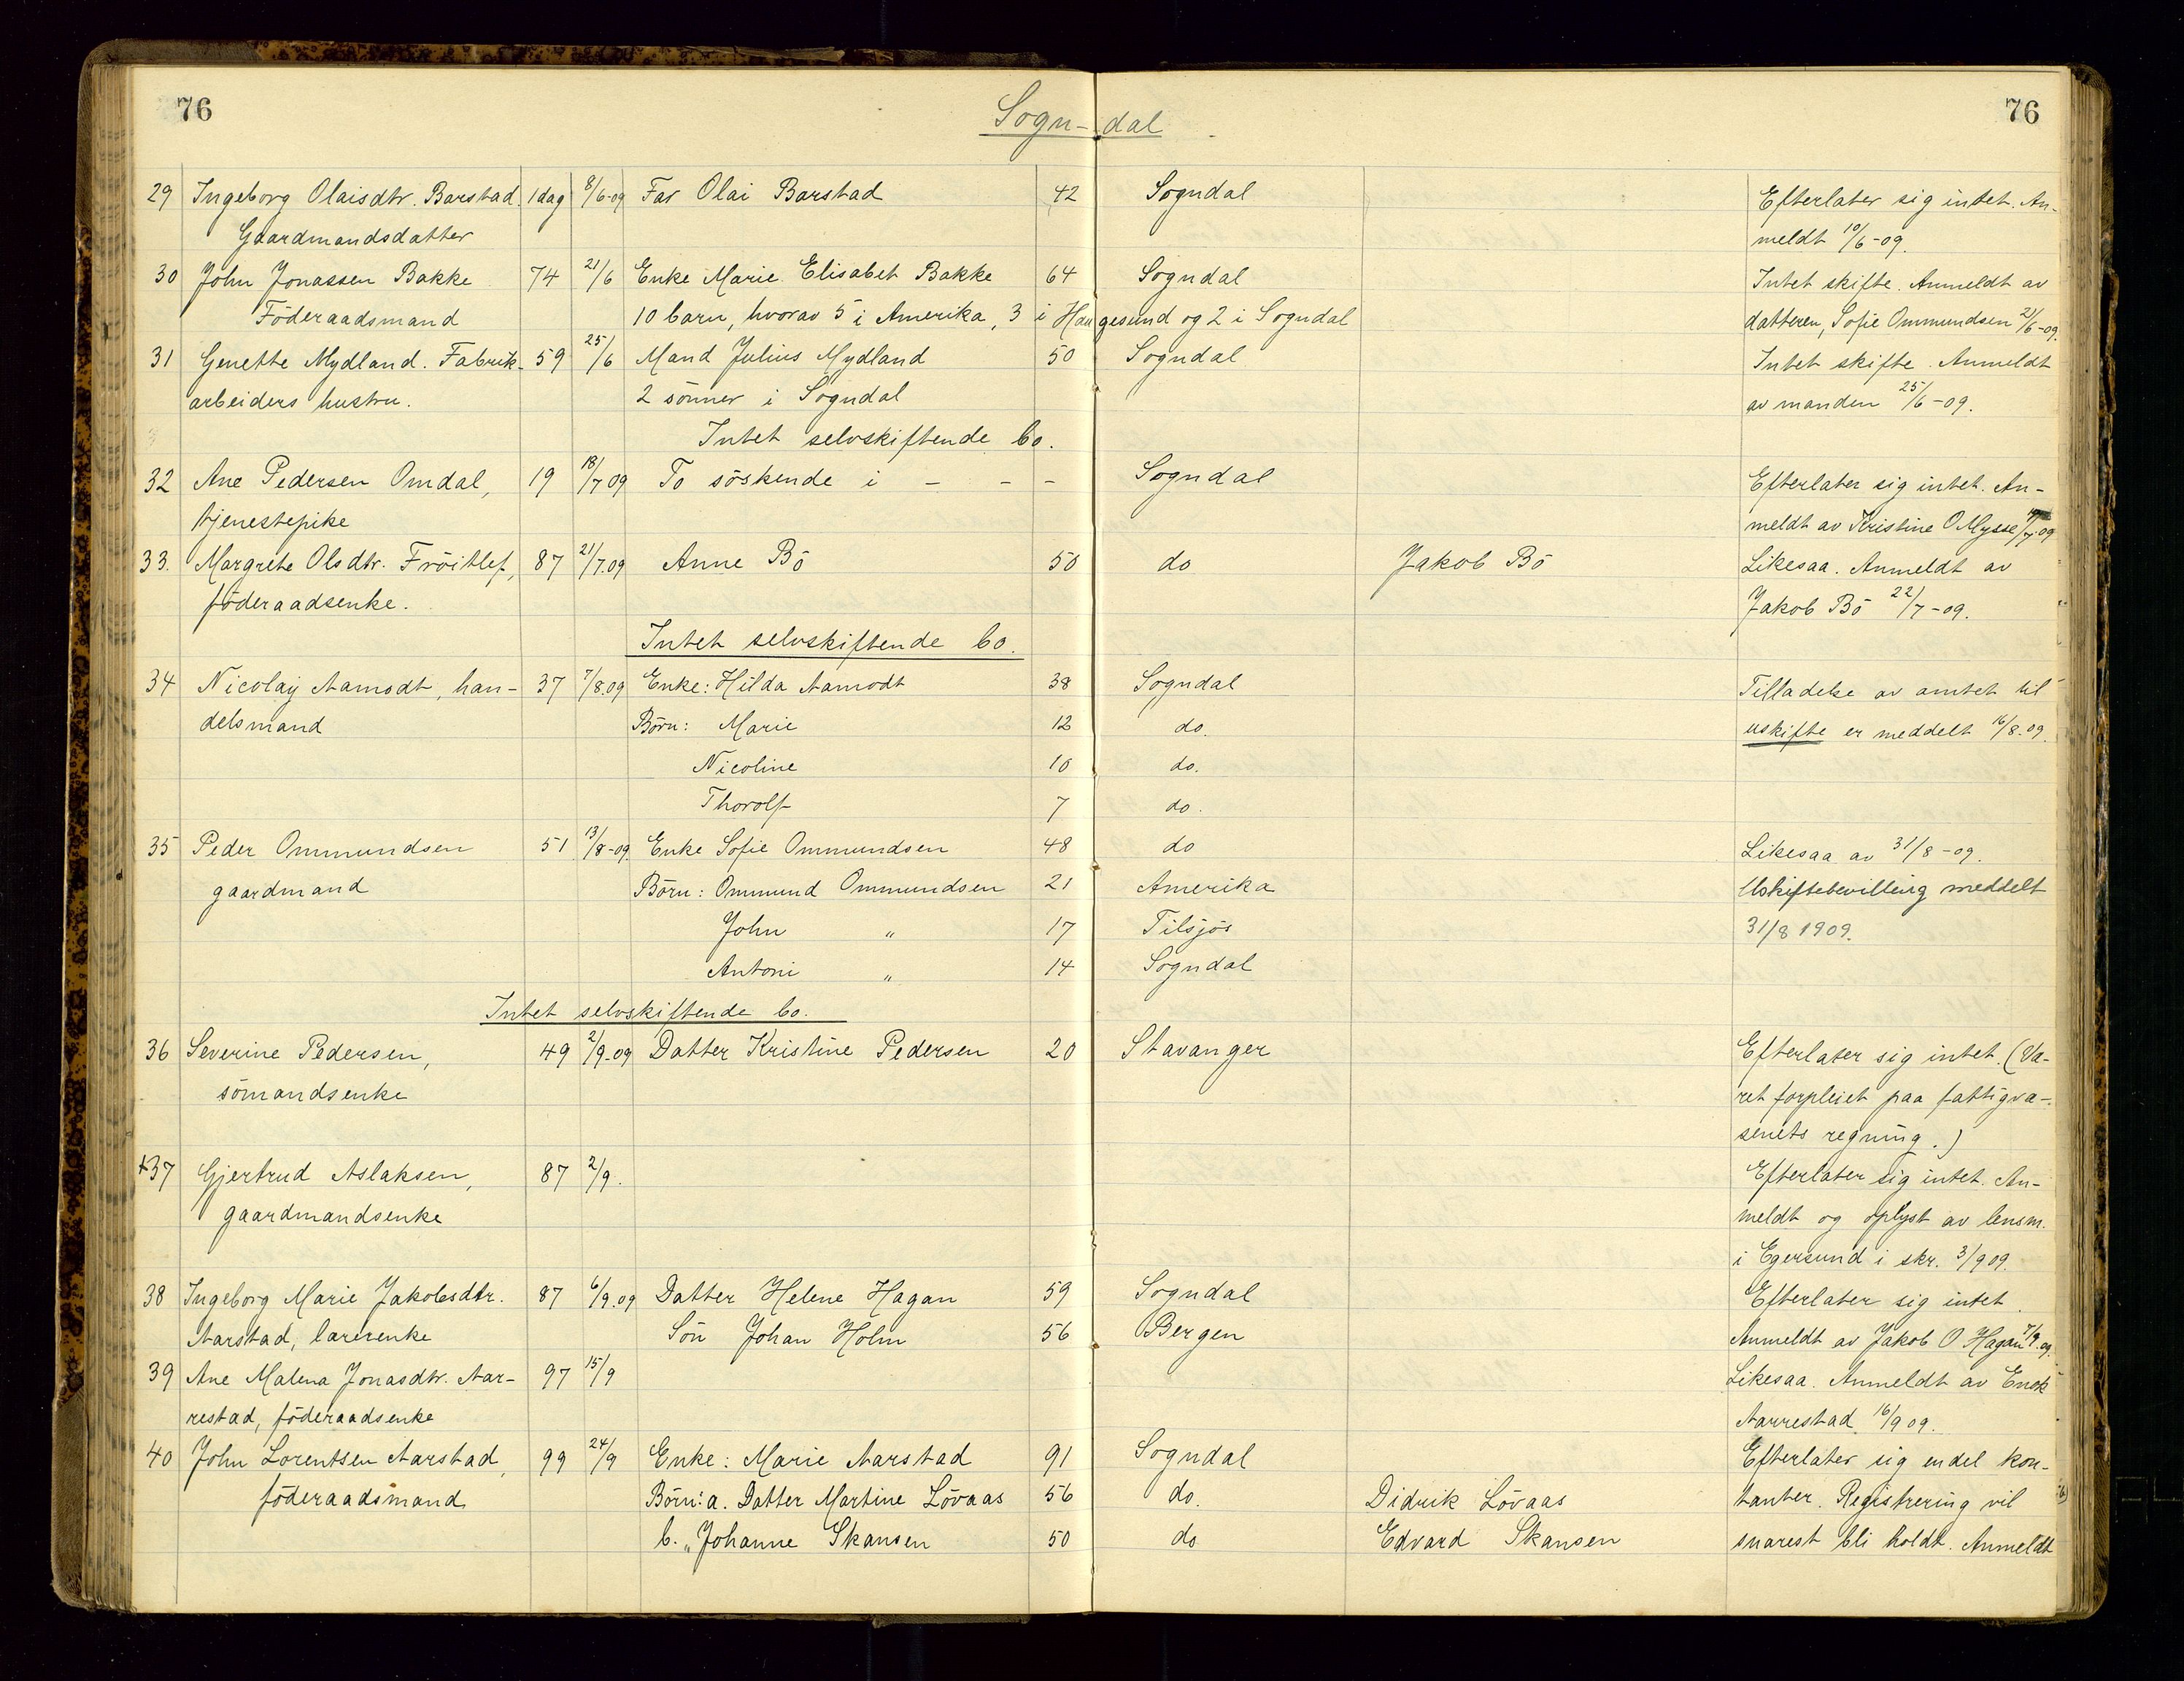 76
Sogn-dal
76
29 Ingeborg Olaisdtr. Barstad. 1 dag 8/6-09 Far Olai Barstad 42 Sogndal Efterlater sig intet. An-
Gaardmandsdatter meldt 10/6-09.
30 John Jonassen Bakke 74 21/6 Enke Marie Elisabet Bakke 64 Sogndal Intet skifte. Anmeldt av
Föderaadsmand 10 barn, hvorav 5 i Amerika, 3 i Haugesund og 2 i Sogndal datteren, Sofie Ommundsen 21/6-09.
31 Genette Mydland. Fabrik- 59 25/6 Mand Julius Mydland 50 Sogndal Intet skifte. Anmeldt
arbeiders hustru. 2 sönner i Sogndal av manden 25/6-09.
Intet selvskiftende bo.
32 Ane Pedersen Omdal, 19 18/7 09 To söskende i - - - Sogndal Efterlater sig intet. An-
tjenestepike meldt av Kristine O Mysse /7-09
33. Margrete Olsdtr. Fröitlef, 87 21/7.09 Anne Bö 50 do Jakob Bö Likesaa. Anmeldt av
föderaadsenke. Jakob Bö 22/7-09.
Intet selvskiftende bo.
34 Nicolay Aamodt, han- 37 7/8.09 Enke: Hilda Aamodt 38 Sogndal Tilladelse av amtet til
delsmand Börn: Marie 12 do. uskifte er meddelt 16/8-09.
Nicoline 10 do.
Thorolf 7 do.
35 Peder Ommundsen 51 13/8-09 Enke Sofie Ommundsen 48 do Likesaa av 31/8-09.
gaardmand Börn: Ommund Ommundsen 21 Amerika Uskiftebevilling meddelt
John " 17 Tilsjös 31/8 1909.
Antoni " 14 Sogndal
Intet selvskiftende bo.
36 Severine Pedersen, 49 2/9-09 Datter Kristine Pedersen 20 Stavanger Efterlater sig intet. (Va-
sömandsenke ret forpleiet paa fattigva-
senets regning.)
+37 Gjertrud Aslaksen, 87 2/9. Efterlater sig intet. An-
gaardmandsenke meldt og oplyst av lensm.
i Egersund i skr. 3/9 09.
38 Ingeborg Marie Jakobsdtr. 87 6/9.09 Datter Helene Hagan 59 Sogndal Efterlater sig intet.
Aarstad, lærerenke Sön Johan Holm 56 Bergen Anmeldt av Jakob O Hagan 7/9.09.
39 Ane Malena Jonasdtr. Aar- 97 15/9 Likesaa. Anmeldt av Enok
restad, föderaadsenke Aarrestad 16/9 09.
40 John Lorentsen Aarstad, 99 24/9 Enke: Marie Aarstad 91 Sogndal Efterlater sig endel kon-
föderaadsmand Börn: a. Datter Martine Lövaas 56 do. Didrik Lövaas tanter. Registrering vil
b. " Johanne Skansen 50 do Edvard Skansen snarest bli holdt. Anmeldt